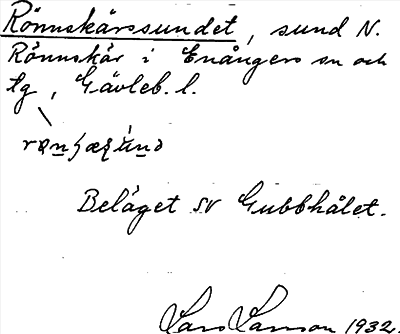 Rönnskärssundet, sund N.
Rönnskär i Enångers sn och
tg, Gävleb. l.
Beläget sv Gubbhålet.
Lars Larsson 1932.